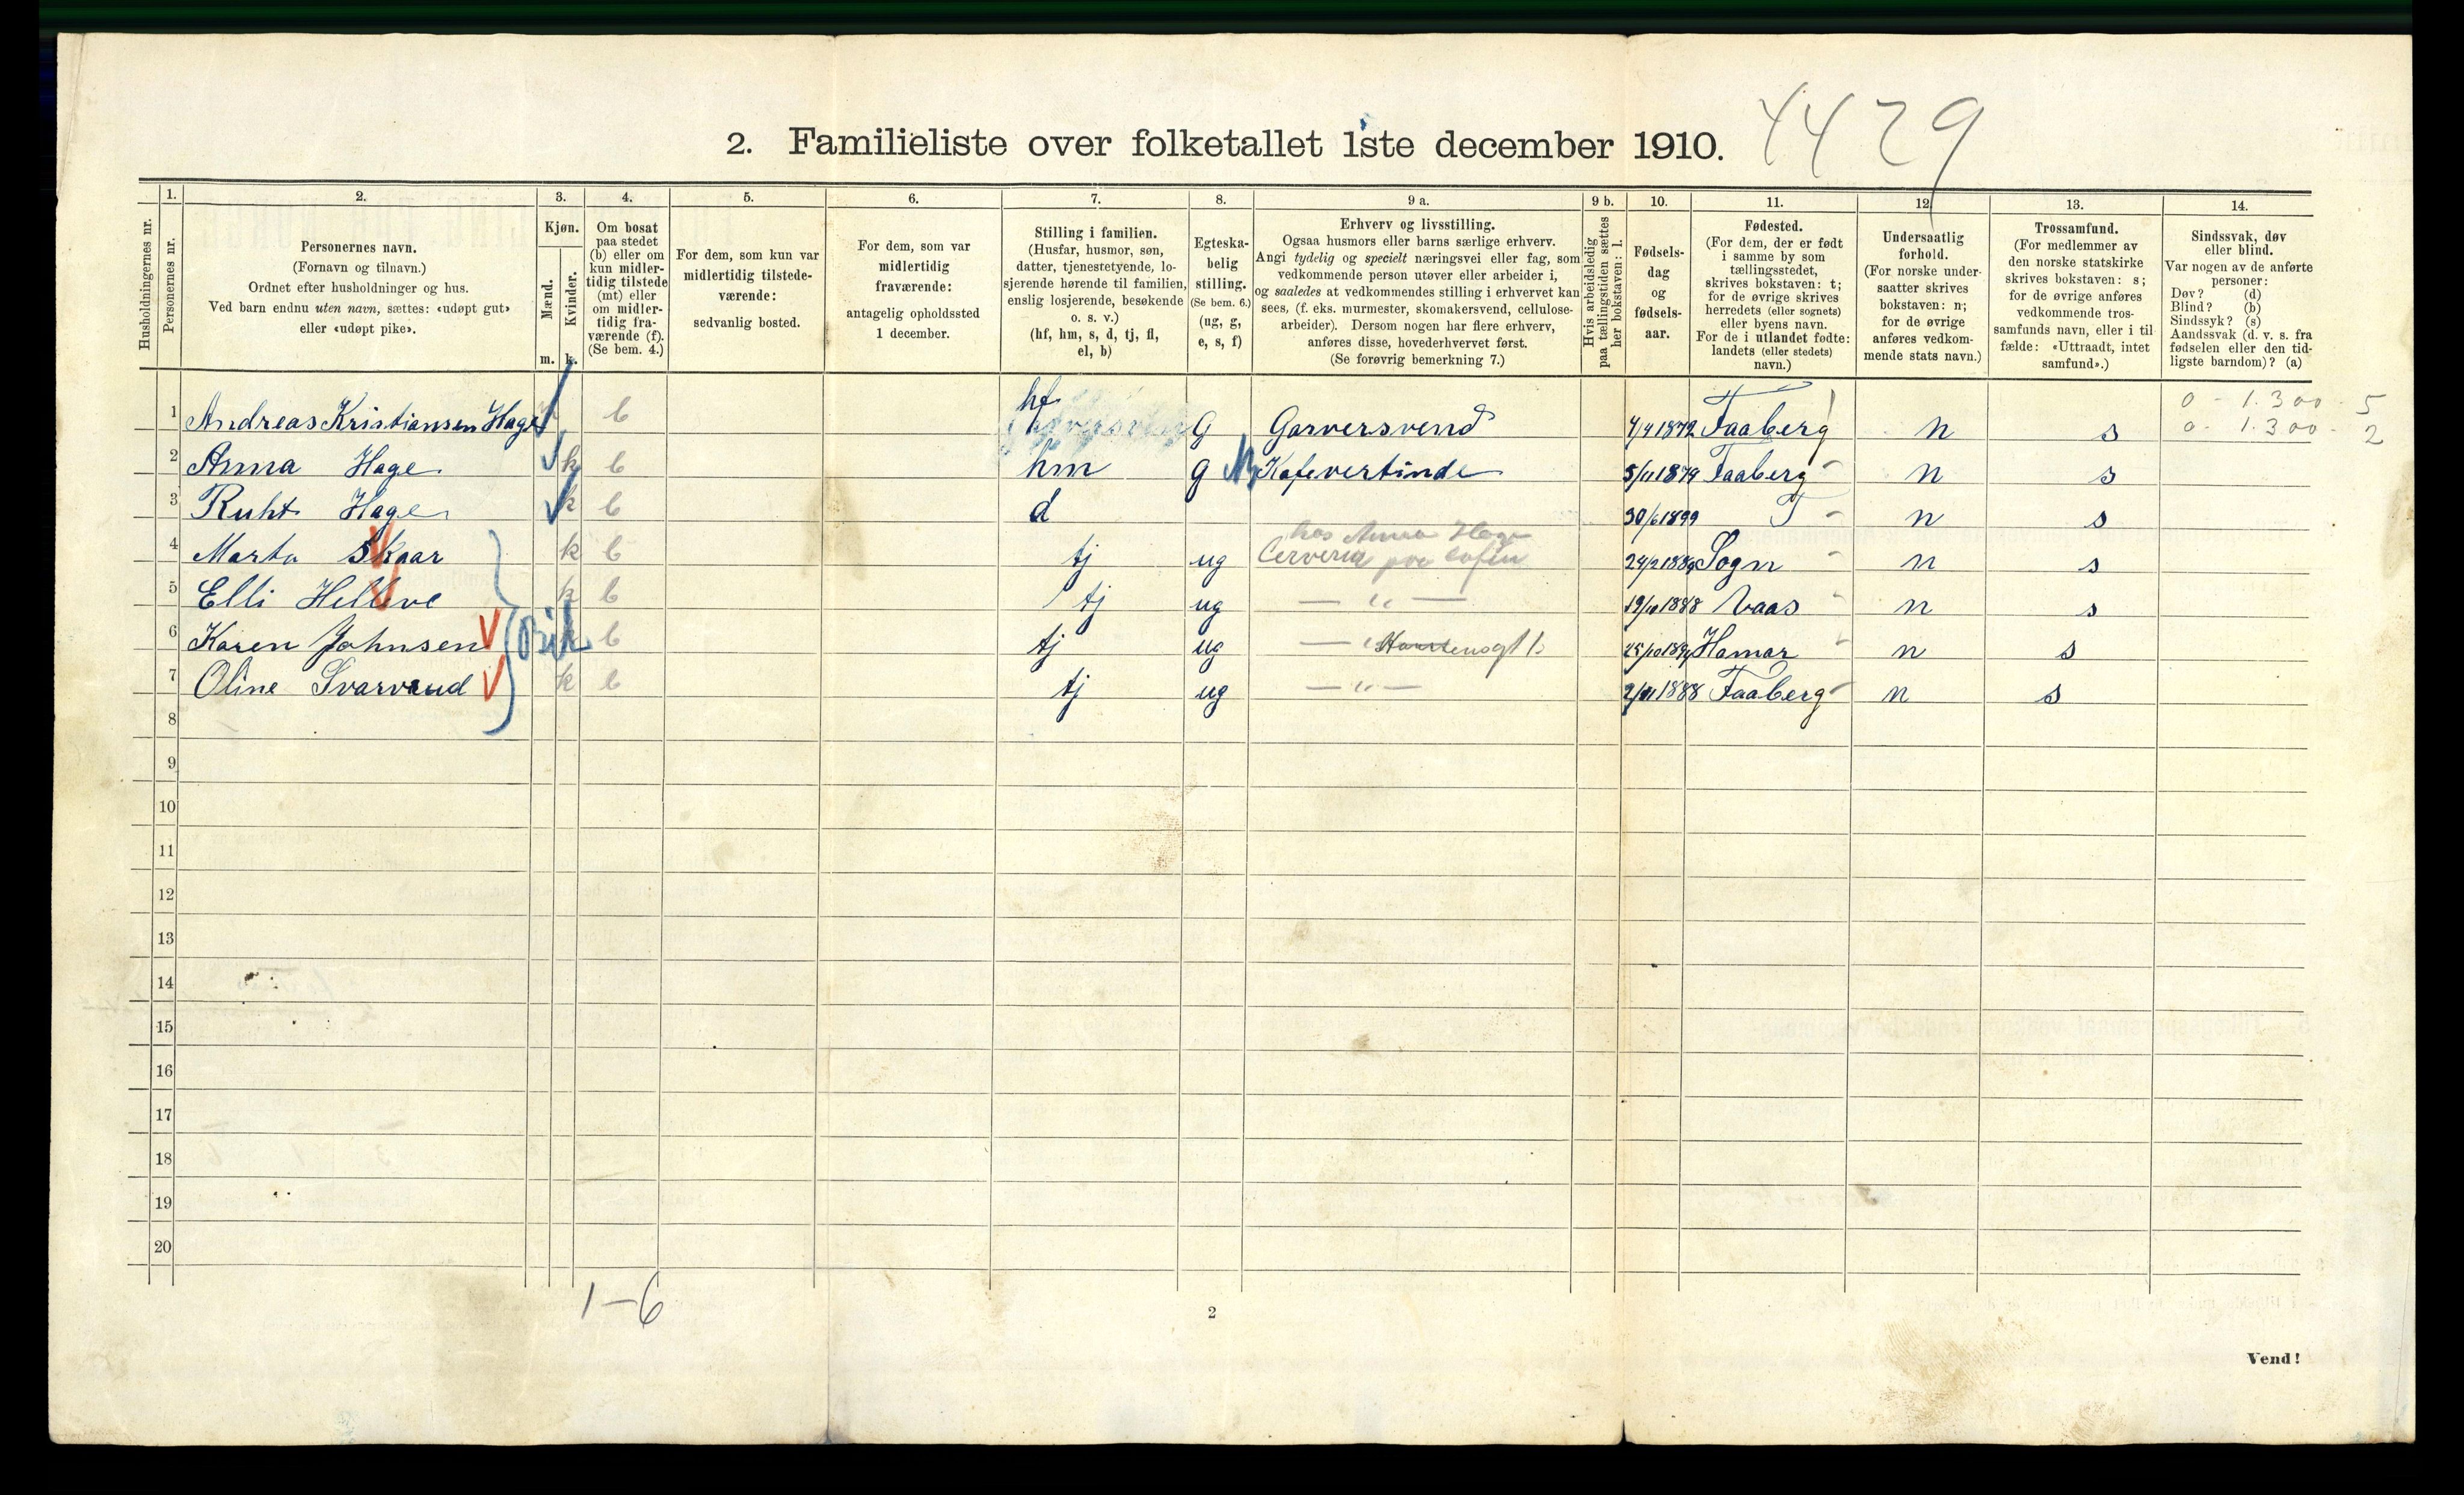 4429
2. Familieliste over folketallet 1ste december 1910.
Husholdningernes nr.
1. Personernes nr.
2. Personernes navn. (Fornavn og tilnavn.) Ordnet efter husholdninger og hus. Ved barn endnu uten navn, sættes: «udøpt gut» eller «udøpt pike».
3. Kjøn. Mænd. m. Kvinder. k.
4. Om bosat paa stedet (b) eller om kun midlertidig tilstede (mt) eller om midlertidig fraværende (f). (Se bem. 4.)
5. For dem, som kun var midlertidig tilstedeværende: sedvanlig bosted.
6. For dem, som var midlertidig fraværende: antagelig opholdssted 1 december.
7. Stilling i familien. (Husfar, husmor, søn, datter, tjenestetyende, losjerende hørende til familien, enslig losjerende, besøkende o. s. v.) (hf, hm, s, d, tj, fl, el, b)
8. Egteskabelig stilling. (Se bem. 6.) (ug, g, e, s, f)
9 a. Erhverv og livsstilling. Ogsaa husmors eller barns særlige erhverv. Angi tydelig og specielt næringsvei eller fag, som vedkommende person utøver eller arbeider i, og saaledes at vedkommendes stilling i erhvervet kan sees, (f. eks. murmester, skomakersvend, cellulosearbeider). Dersom nogen har flere erhverv, anføres disse, hovederhvervet først. (Se forøvrig bemerkning 7.)
9 b. Hvis arbeidsledig paa tællingstiden sættes her bokstaven: l.
10. Fødselsdag og fødselsaar.
11. Fødested. (For dem, der er født i samme by som tællingsstedet, skrives bokstaven: t; for de øvrige skrives herredets (eller sognets) eller byens navn. For de i utlandet fødte: landets (eller stedets) navn.)
12. Undersaatlig forhold. (For norske undersaatter skrives bokstaven: n; for de øvrige anføres vedkommende stats navn.)
13. Trossamfund. (For medlemmer av den norske statskirke skrives bokstaven: s; for de øvrige anføres vedkommende trossamfunds navn, eller i tilfælde: «Uttraadt, intet samfund».)
14. Sindssvak, døv eller blind. Var nogen av de anførte personer: Døv? (d) Blind? (b) Sindssyk? (s) Aandssvak (d. v. s. fra fødselen eller den tidligste barndom)? (a)
1 Andreas Kristiansen Hage b hf G Garversvend 4/4 1872 Faaberg n s 0 - 1.300 - 5
0 - 1.300 - 2
2 Anna Hage k b hm g Kafevertinde 5/11 1879 Faaberg n s
3 Ruht Hage k b d 30/6 1899 T n s
hos Anna Hage
4 Marta Skaar k b tj ug paa cafeen Sogn n s
5 Elli Helleve k b tj ug — " — 19/10 1888 Vaas n s
6 Karen Johnsen b tj ug — " Hamar n s
7 Oline Svarvaud k b tj ug — " — 2/11 1888 Faaberg n s
8
9
10
11
12
13
14
15
16
17
18
19
20
1-6
2
Vend!